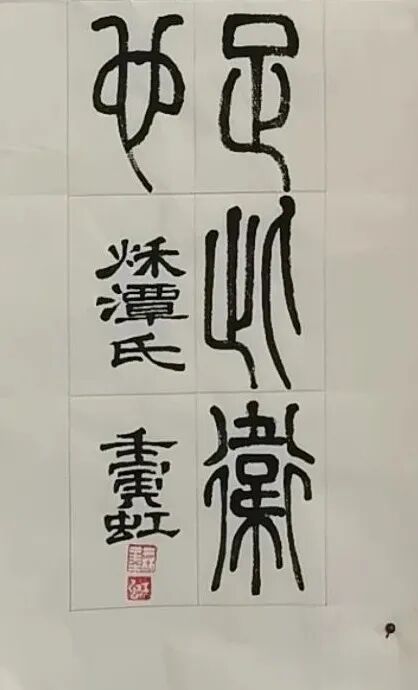 足此衛
也
秌潭氏
壬寅虹